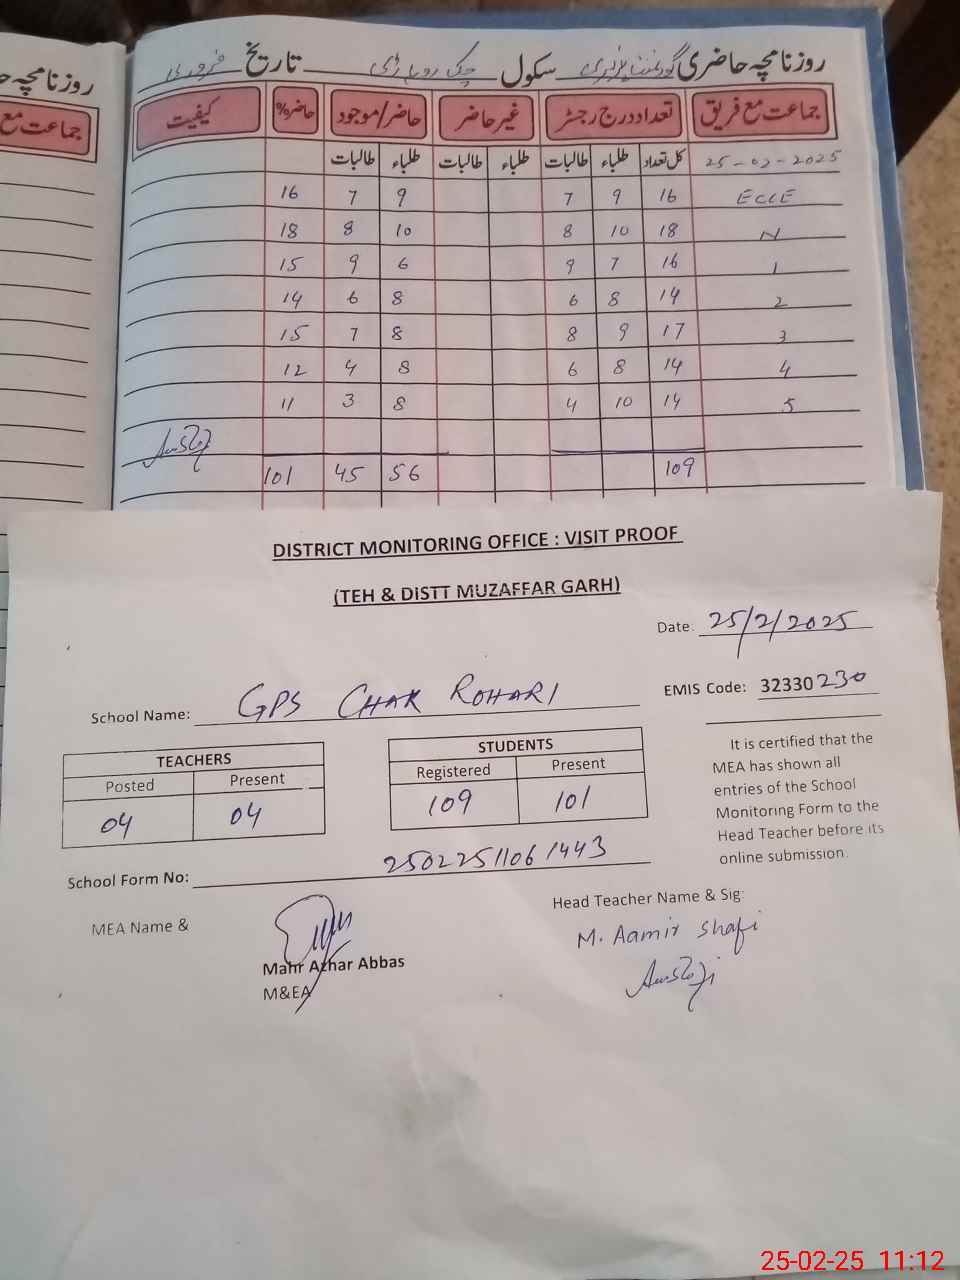 روزنامچہ حاضری گورنمنٹ پرائمری سکول چک روہاڑی تاریخ فروری
جماعت مع فریق تعداد درج رجسٹر غیر حاضر حاضر/موجود حاضر% کیفیت
25-02-2025 کل تعداد طلباء طالبات طلباء طالبات طلباء طالبات
ECCE 16 9 7 9 7 16
N 18 10 8 10 8 18
1 16 7 9 6 9 15
2 14 8 6 8 6 14
3 17 9 8 8 7 15
4 14 8 6 8 4 12
5 14 10 4 8 3 11
109 56 45 101
روزنامچہ حا
جماعت مع
DISTRICT MONITORING OFFICE : VISIT PROOF
(TEH & DISTT MUZAFFAR GARH)
Date: 25/2/2025
School Name: GPS CHAK ROHARI
EMIS Code: 32330230
TEACHERS
Posted Present
04 04
STUDENTS
Registered Present
109 101
It is certified that the
MEA has shown all
entries of the School
Monitoring Form to the
Head Teacher before its
online submission.
School Form No: 25022511061443
MEA Name &
Mahr Azhar Abbas
M&EA
Head Teacher Name & Sig:
M. Aamir Shafi
25-02-25 11:12